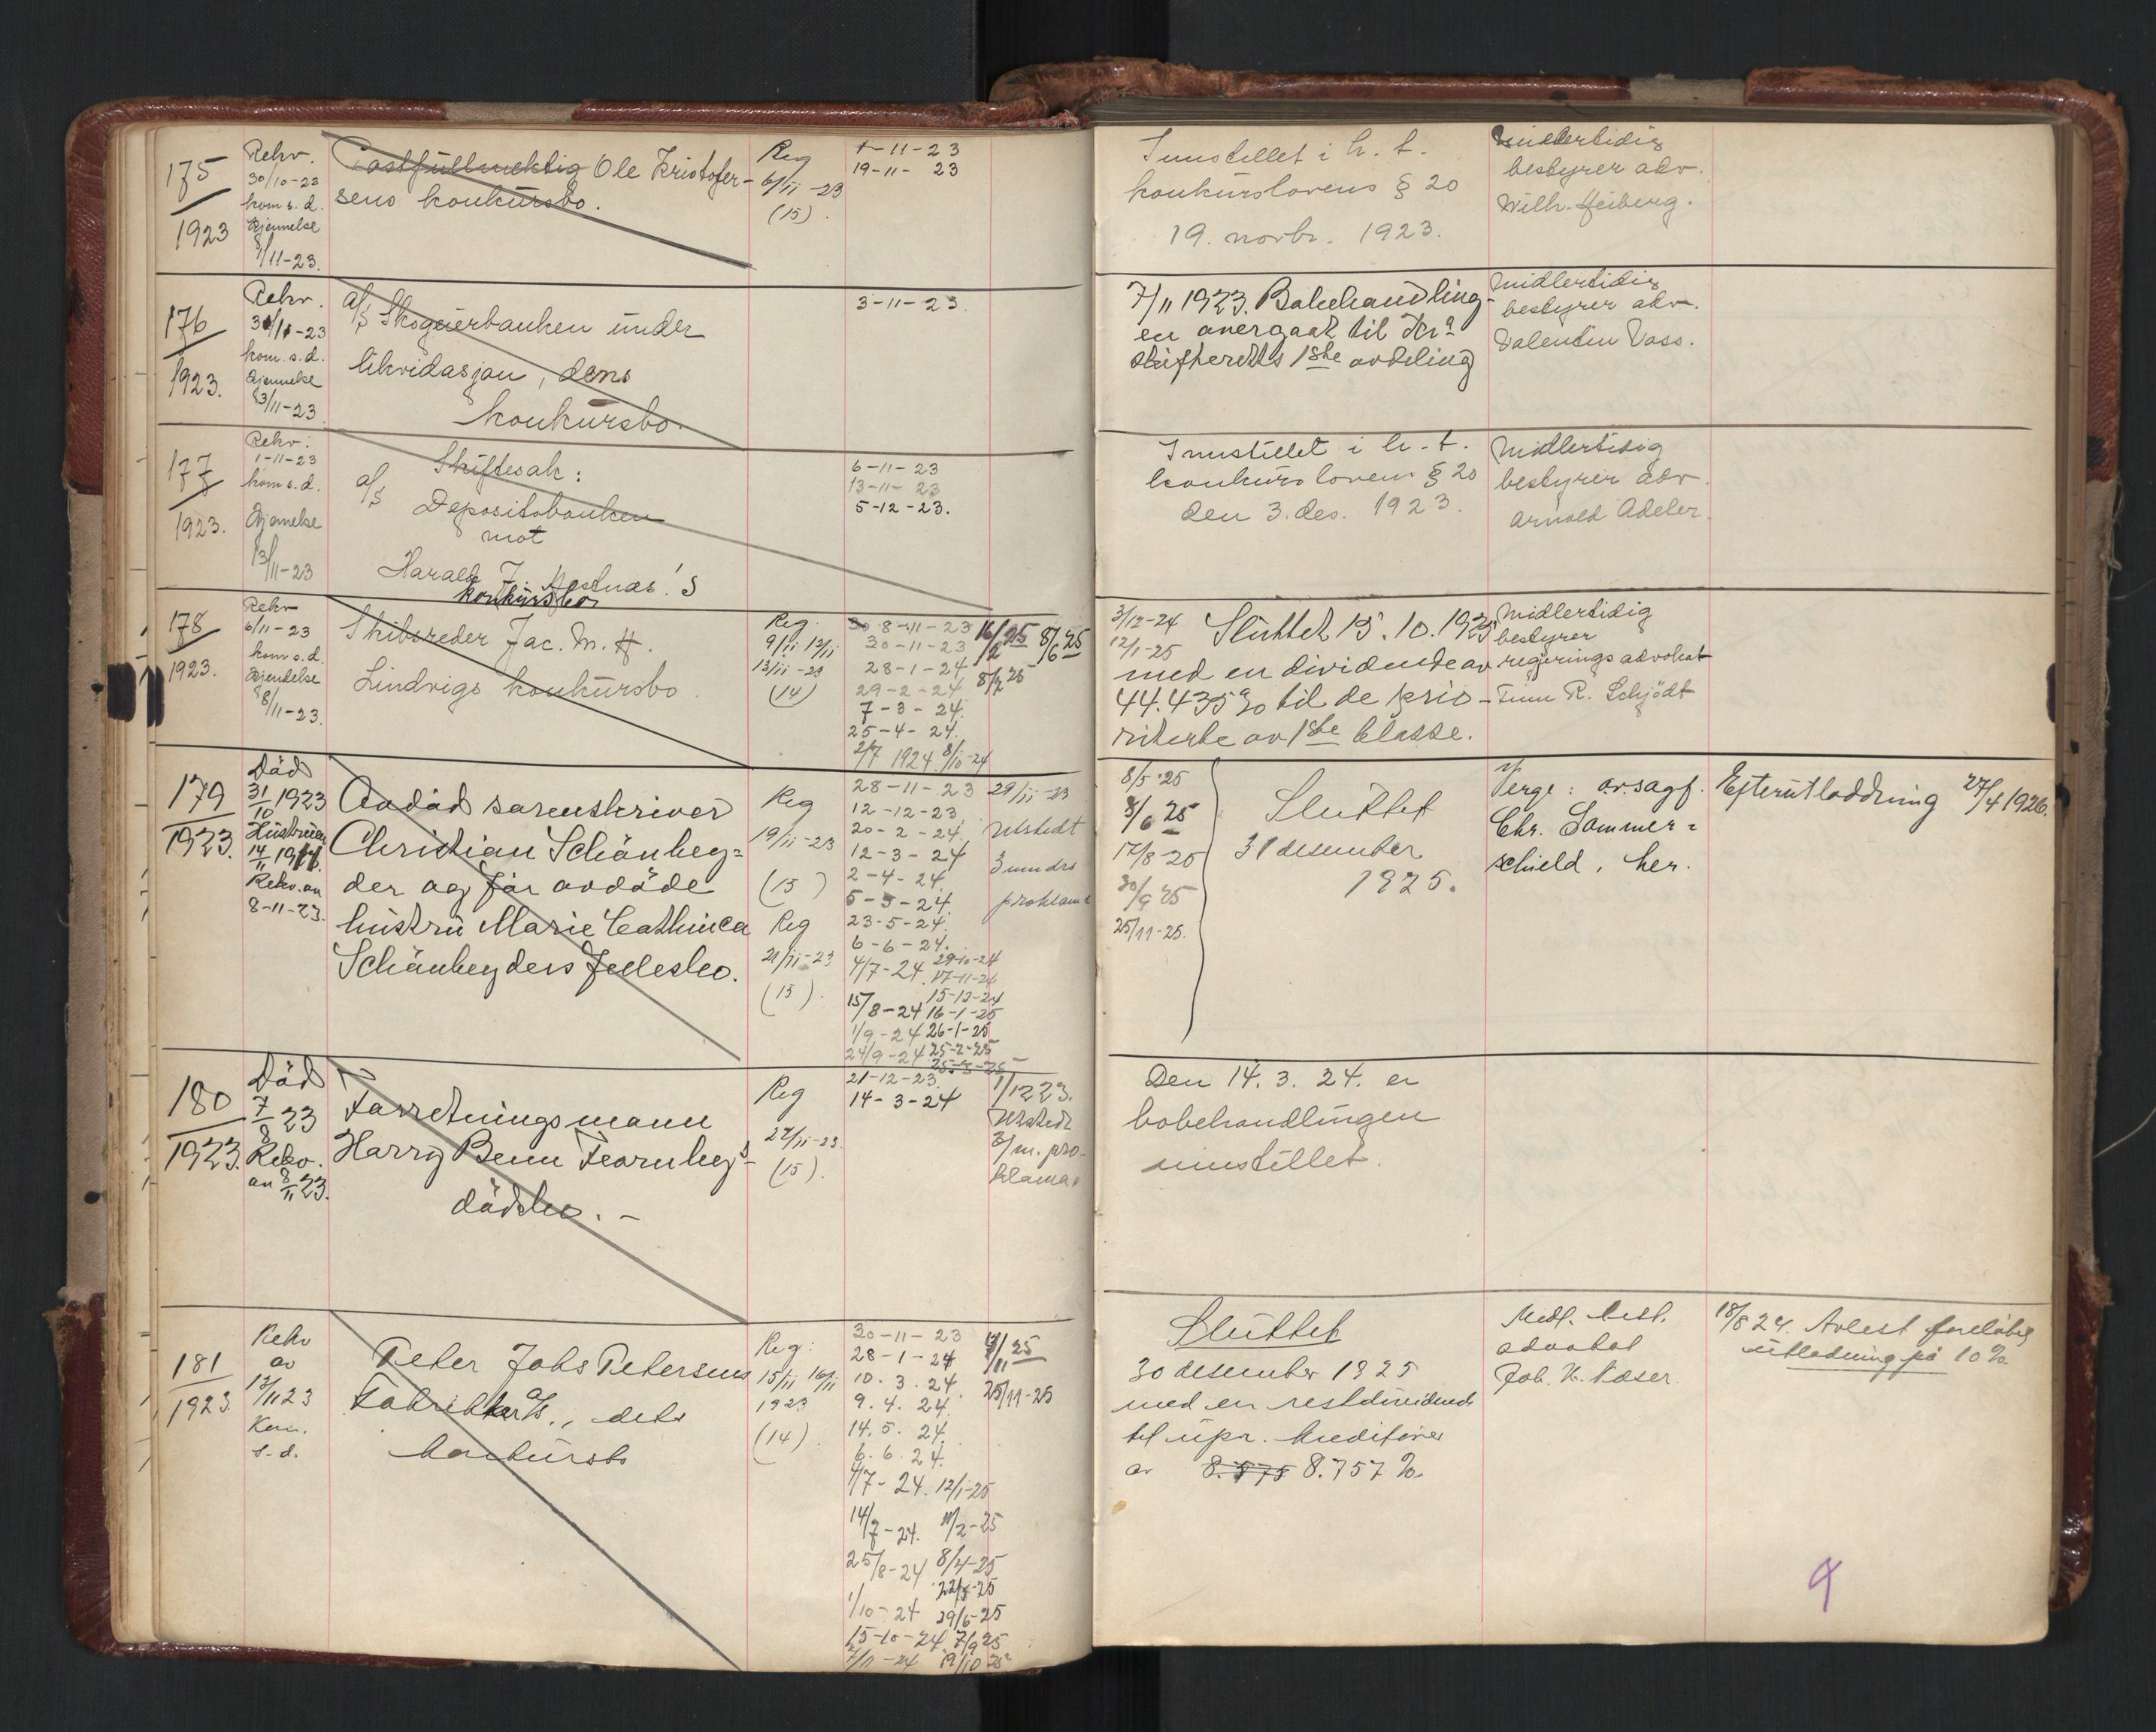 175
1923
Rekv.
30/10-23
kom s. d.
Kjennelse
1/11-23.
Postfullmektig Ole Kristofer-
sens konkursbo.
Reg
6/11-23
(15).
1-11-23
19-11-23
Innstillet i h. t.
konkurslovens § 20
19. novbr. 1923.
Midlertidig
bestyrer adv.
Wilh. Heiberg.
176
1923.
Rekv.
kom. s. d.
Kjennelse
3/11-23
a/s Skogeierbanken under
likvidasjon, dens
konkursbo.
3-11-23.
7/11 1923. Bobehandling-
en overgaat til Kra
skifteretts 1ste avdeling
Midlertidig
bestyrer adv.
Valentin Voss.
177
1923.
Rekv.
1-11-23
kom s. d.
Kjennelse
13/11-23
Skiftesak:
a/s Depositobanken
mot
Harald J.
konkursbo
6-11-23
13-11-23
5-12-23.
Innstillet i h. t.
konkurslovens § 20
den 3. des. 1923.
Midlertidig
bestyrer adv.
Arnold Adeler.
178
1923.
Rekv
6/11-23
kom s. d.
Kjendelse
8/11-23.
Skibsreder Jac. M. H.
Lindvigs konkursbo.
Reg.
9/11 12/11
13/11-23
(14)
8-11-23
30-11-23
28-1-24
29-2-24
7-3-24.
25-4-24.
2/7 1924. 8/10-24
16/2 25
8/6 25
3/12-24
12/1-25
Sluttet 15.10.1925
med en dividende av
44.435% til de prio-
riterte av 1ste klasse.
Midlertidig
bestyrer
regjeringsadvokat
Finn R. Schjödt
179
1923.
Död
31/10 1923
Hustruen
Rekv. an
8-11-23.
Avdöd sorenskriver
Christian Schönhey-
der og för avdöde
hustru Marie Cathinca
Schönheyders fellesbo.
Reg
19/11-23
(15)
Reg
21/11-23
(15).
28-11-23
12-12-23
20-2-24
12-3-24
2-4-24
5-5-24.
23-5-24.
6-6-24.
4/7-24
15/8-24
1/9-24
24/9-24
29-10-24
17-11-24
15-12-24
16-1-25
26-1-25
25-2-25
25-3-25
29/11-23
Utstedt
3 mndrs
proklama
8/5 25
8/6 25
17/8-25
30/9 25
25/11-25.
Sluttet
31 desember
1925.
Verge: o.r.sagf.
Chr. Sommer-
schield, her.
Efterutloddning 27/4 1926.
180
1923.
Död
7/8 23
Rekv.
an 8/11 23.
Forretningsmann
Harry Benn Fearnley's
dödsbo.-
Reg
27/11-23.
(15).
21-12-23.
14-3-24
1/12 23.
Utstedt
3/m. pro-
klama.
Den 14. 3. 24. er
bobehandlingen
innstillet.
181
1923
Rekv
av
13/11 23
Kom.
s. d.
Peter Johs Petersens
Fabrikker a/s., dets
konkursbo
Reg:
15/11 16/11
1923
(14).
30-11-23
28-1-24
10. 3. 24.
9. 4. 24.
14. 5. 24.
6. 6. 24.
4/7-24. 12/1-25
14/7-24. 11/2-25
25/8-24 8/4-25
1/10-24 29/6-25
15-10-24 7/9 25
7/11-24 19/10 25
25/11-25
Sluttet
30 desember 1925
med en restdividende
til upr. kreditorer
av 8.575 8.757 %.
Midl. best.
advokat
Joh. K. Næser.
18/8 24. Avlest foreløbig
utlodning på 10 %.
9